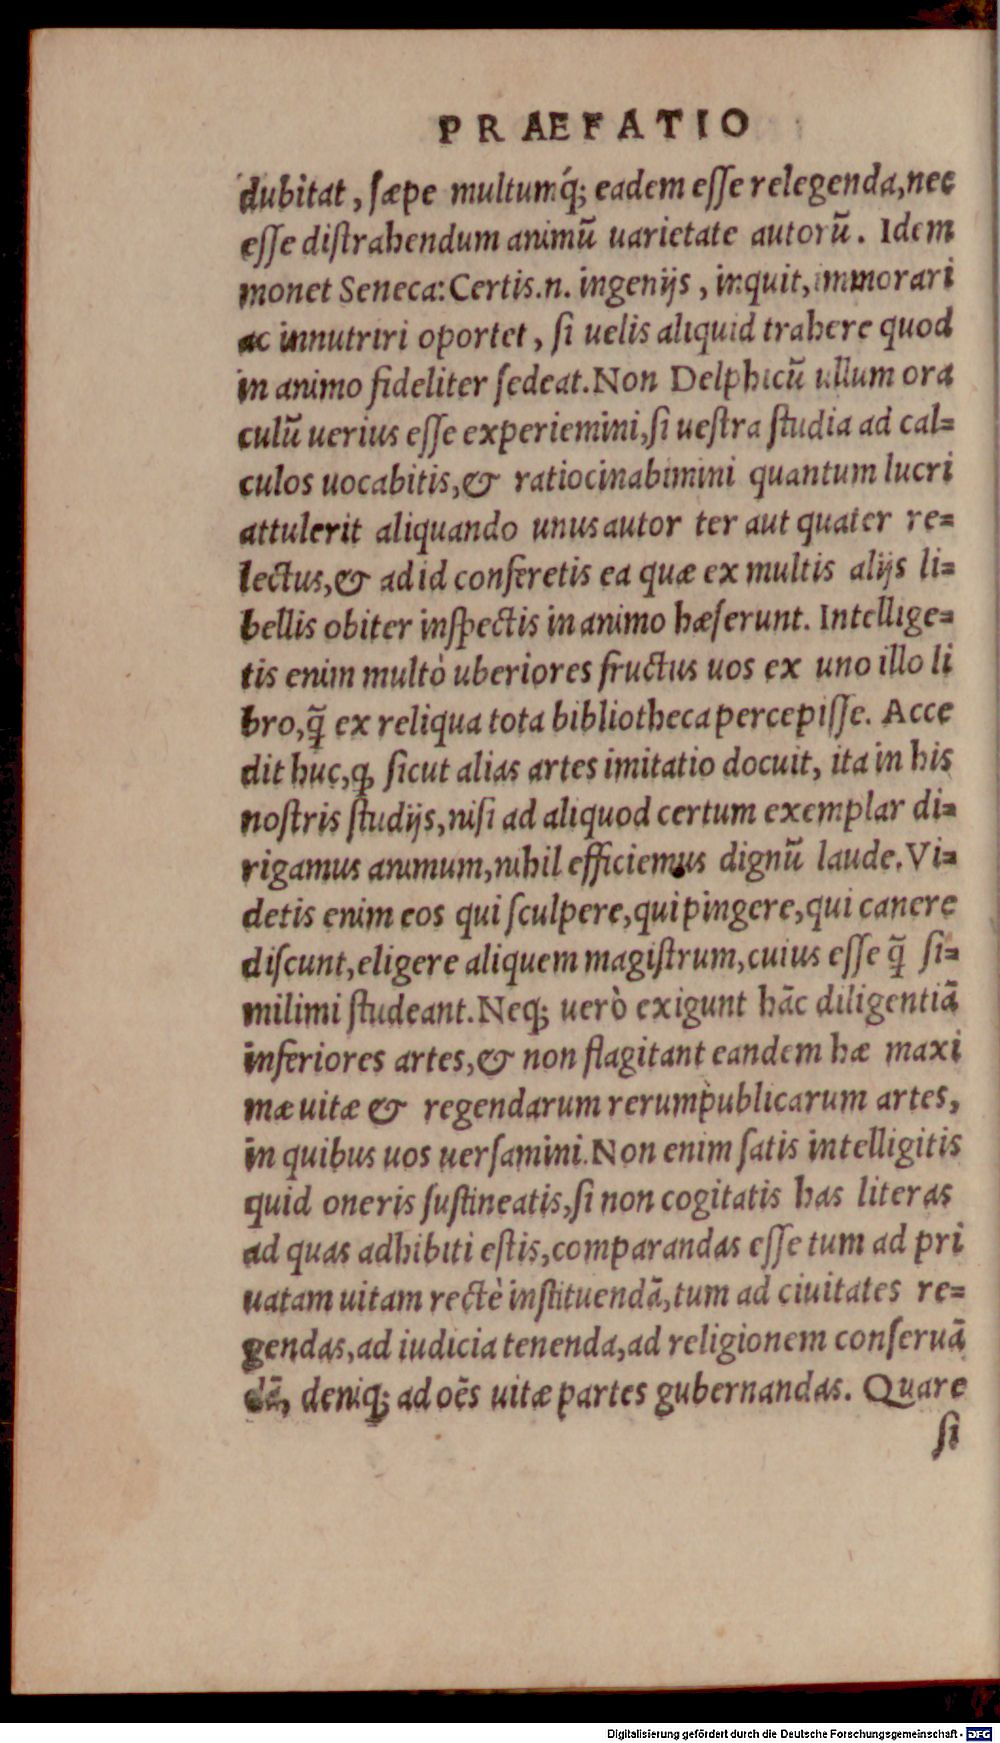 PRAEFATIO
dubitat, sæpe multumq́; eadem esse relegenda, nec
esse distrahendum animũ uarietate autorũ. Idem
monet Seneca: Certis.n. ingenijs, inquit, immorari
ac innutriri oportet, si uelis aliquid trahere quod
in animo fideliter sedeat. Non Delphicũ ullum ora
culũ uerius esse experiemini, si uestra studia ad cal=
culos uocabitis, & ratiocinabimini quantum lucri
attulerit aliquando unus autor ter aut quater re=
lectus, & ad id conferetis ea quæ ex multis alijs li=
bellis obiter inspectis in animo hæserunt. Intellige=
tis enim multò uberiores fructus uos ex uno illo li
bro, q̃ ex reliqua tota bibliotheca percepisse. Acce
dit huc, ꝙ sicut alias artes imitatio docuit, ita in his
nostris studijs, nisi ad aliquod certum exemplar di=
rigamus animum, nihil efficiemus dignũ laude. Vi=
detis enim eos qui sculpere, qui pingere, qui canere
discunt, eligere aliquem magistrum, cuius esse q̃ si=
milimi studeant. Neq; uerò exigunt hãc diligentiã
inferiores artes, & non flagitant eandem hæ maxi
mæ uitæ & regendarum rerumpublicarum artes,
in quibus uos uersamini. Non enim satis intelligitis
quid oneris sustineatis, si non cogitatis has literas
ad quas adhibiti estis, comparandas esse tum ad pri
uatam uitam rectè instituendã, tum ad ciuitates re=
gendas, ad iudicia tenenda, ad religionem conseruã
dã, deniq; ad oẽs uitæ partes gubernandas. Quare
si
Digitalisierung gefördert durch die Deutsche Forschungsgemeinschaft - DFG